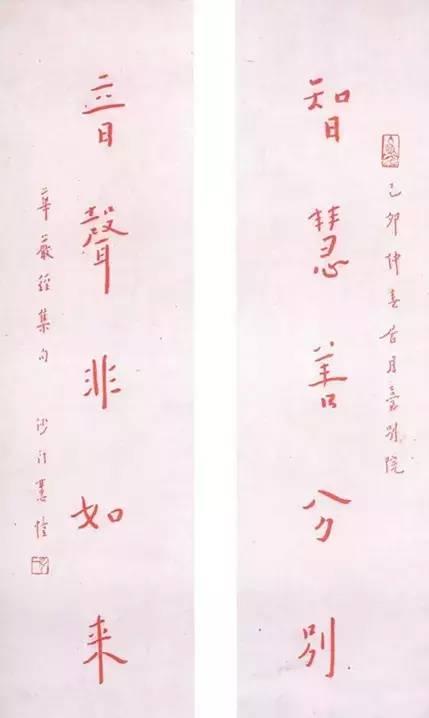 智慧善分別
己卯仲春居月臺別院
音聲非如来
華嚴經集句 沙門